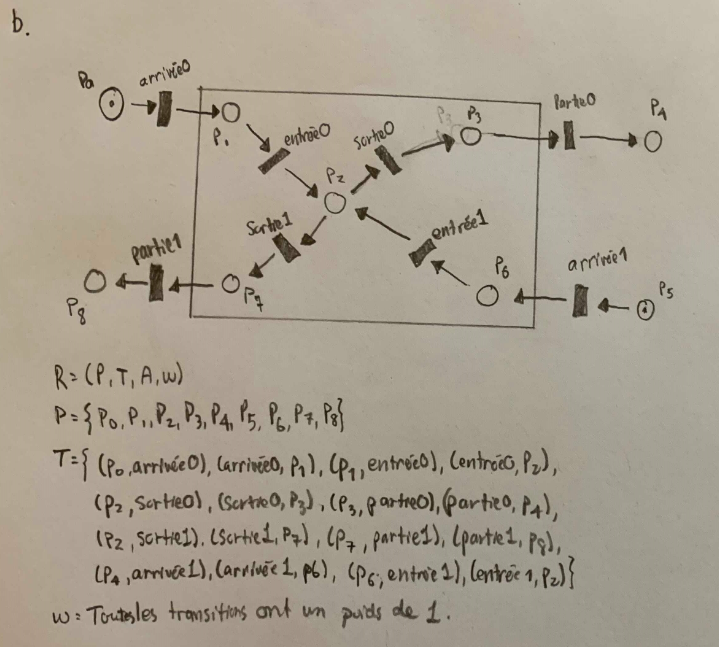 b.
P0 arrivée0 P1 entrée0 P2 sortie0 P3 P3 Partie0 P4
P8 partie1 P7 Sortie1 entrée1 P6 arrivée1 P5
R=(P,T,A,w)
P={P0,P1,P2,P3,P4,P5,P6,P7,P8}
T={(P0,arrivée0),(arrivée0,P1),(P1,entrée0),(entrée0,P2),
(P2,Sortie0),(Sortie0,P3),(P3,partie0),(partie0,P4),
(P2,sortie1).(Sortie1,P7),(P7,partie1),(partie1,P8),
(P4,arrivée1),(arrivée1,p6),(P6,entrée1),(entrée1,P2)}
w=Toutesles transitions ont un poids de 1.